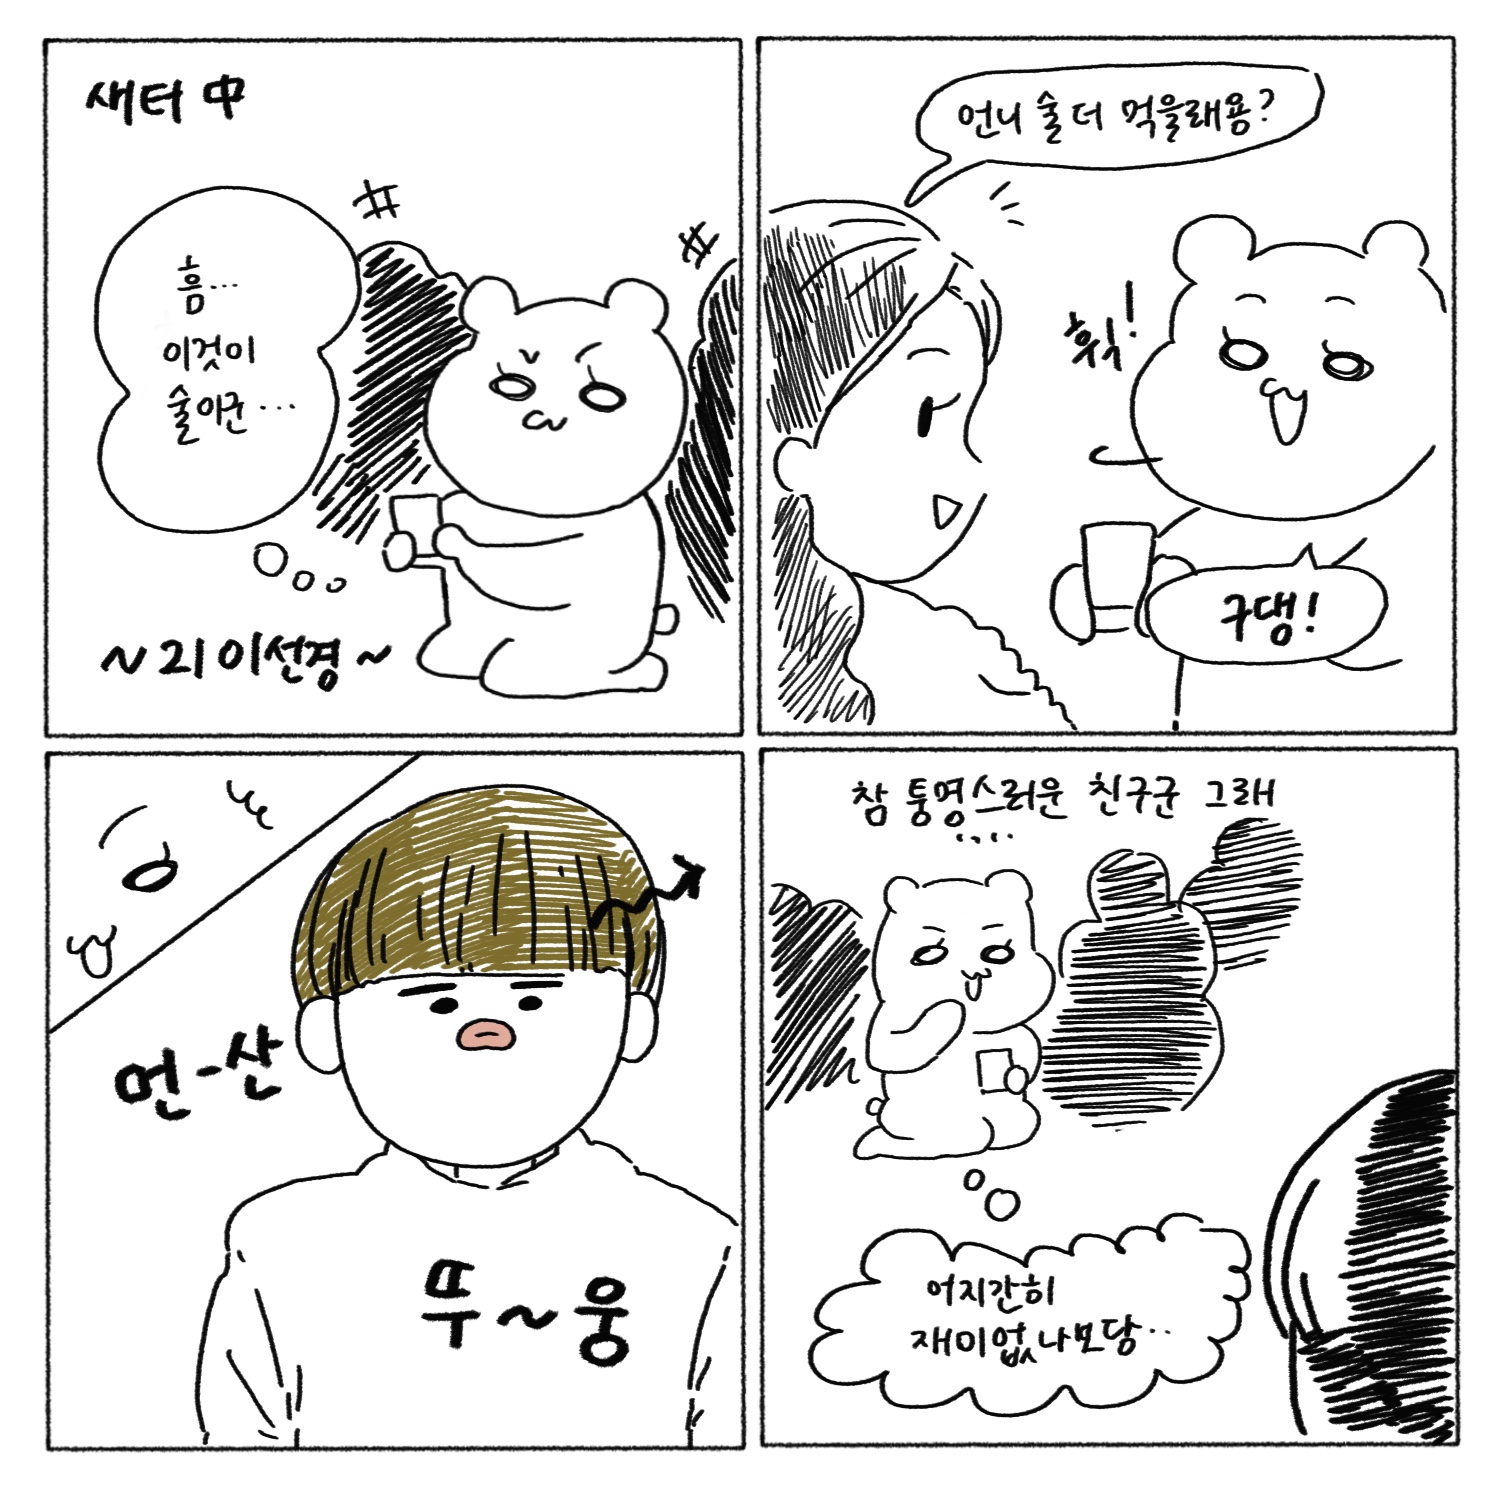 새터 中
흠...
이것이
술이군...
~21 이선경~
언니 술 더 먹을래용?
휙!
구댕!
먼-산
뚜~웅
참 퉁명스러운 친구군 그래
....
어지간히
재미없나보당..